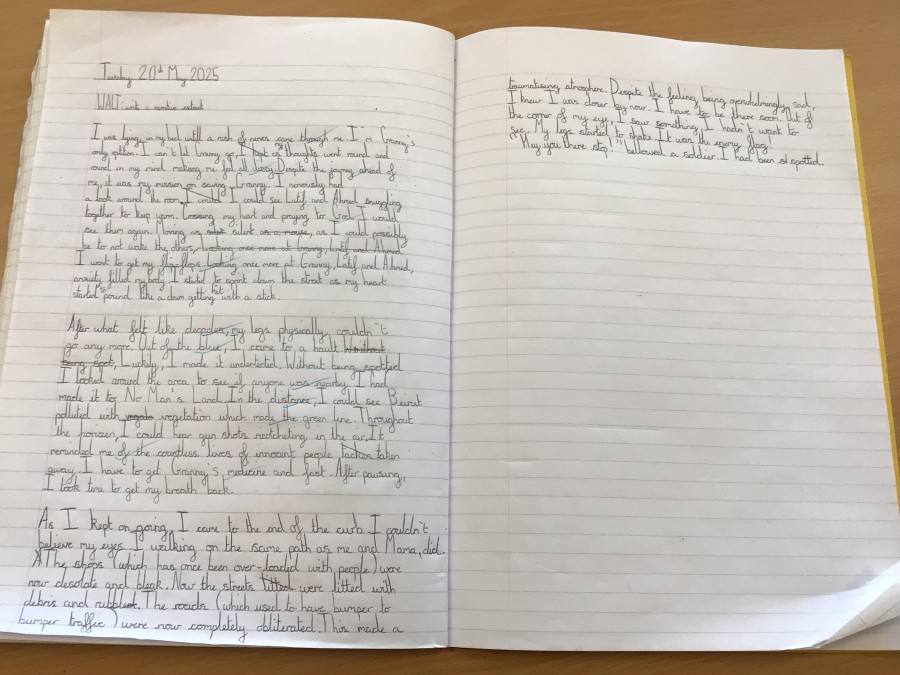 Tuesday 20th May 2025
WALT: write a narrative extract
I was lying in my bed until a rush of came through me. I'm Granny's
only option. I can't let Granny go, I kept on thoughts went round and
round in my mind making me feel all dizzy. Despite the journey ahead of
me, it was my mission on saving Granny. I nervously had
a look around the room. I could I could see Latif and Ahmed snuggling
together to keep warm. Crossing my heart and praying to God I would
see them again. Moving as silent as a mouse, as I could possibly
be to not wake the others, Looking once more at Granny, Latif and Ahmed
I went to get my flip-flops. Looking once more at Granny, Latif and Ahmed,
anxiety filled my body. I started to sprint down the street as my heart
started pound like a drum getting hit with a stick.
After what felt like decades, my legs physically couldn't
go any more. Out of the blue, I came to a hault. Without
being spot, Luckily, I made it undertected. Without being spotted
I looked around the area to see if anyone was nearby. I had
made it to No Man's Land. In the distance, I could see Beirut
polluted with vegetation which made the green line. Throughout
the horizon, I could hear gun shots ricotcheting in the air. It
reminded me of the countless lives of innocent people taken
away. I have to get Granny's medicine and fast. After pausing,
I took time to get my breath back.
As I kept on going, I came to the end of the curb. I couldn't
believe my eyes. I walking on the same path as me and Mama, did.
The shops (which has once been over-loaded with people) were
now desolate and bleak. Now the streets were litted with
debris and rubble. The roads (which used to have bumper to
bumper traffic) were now completely obliterated. This made a
traumatising atmosphere. Despite the feeling being overwhelmingly sad,
I knew I was closer by now. I have to be there soon. Out of
the corner of my eye, I saw something I hadn't want to
see. My legs started to shake. It was the enemy flag!
"Hey you there stop!" bellowed a soldier. I had been spotted.